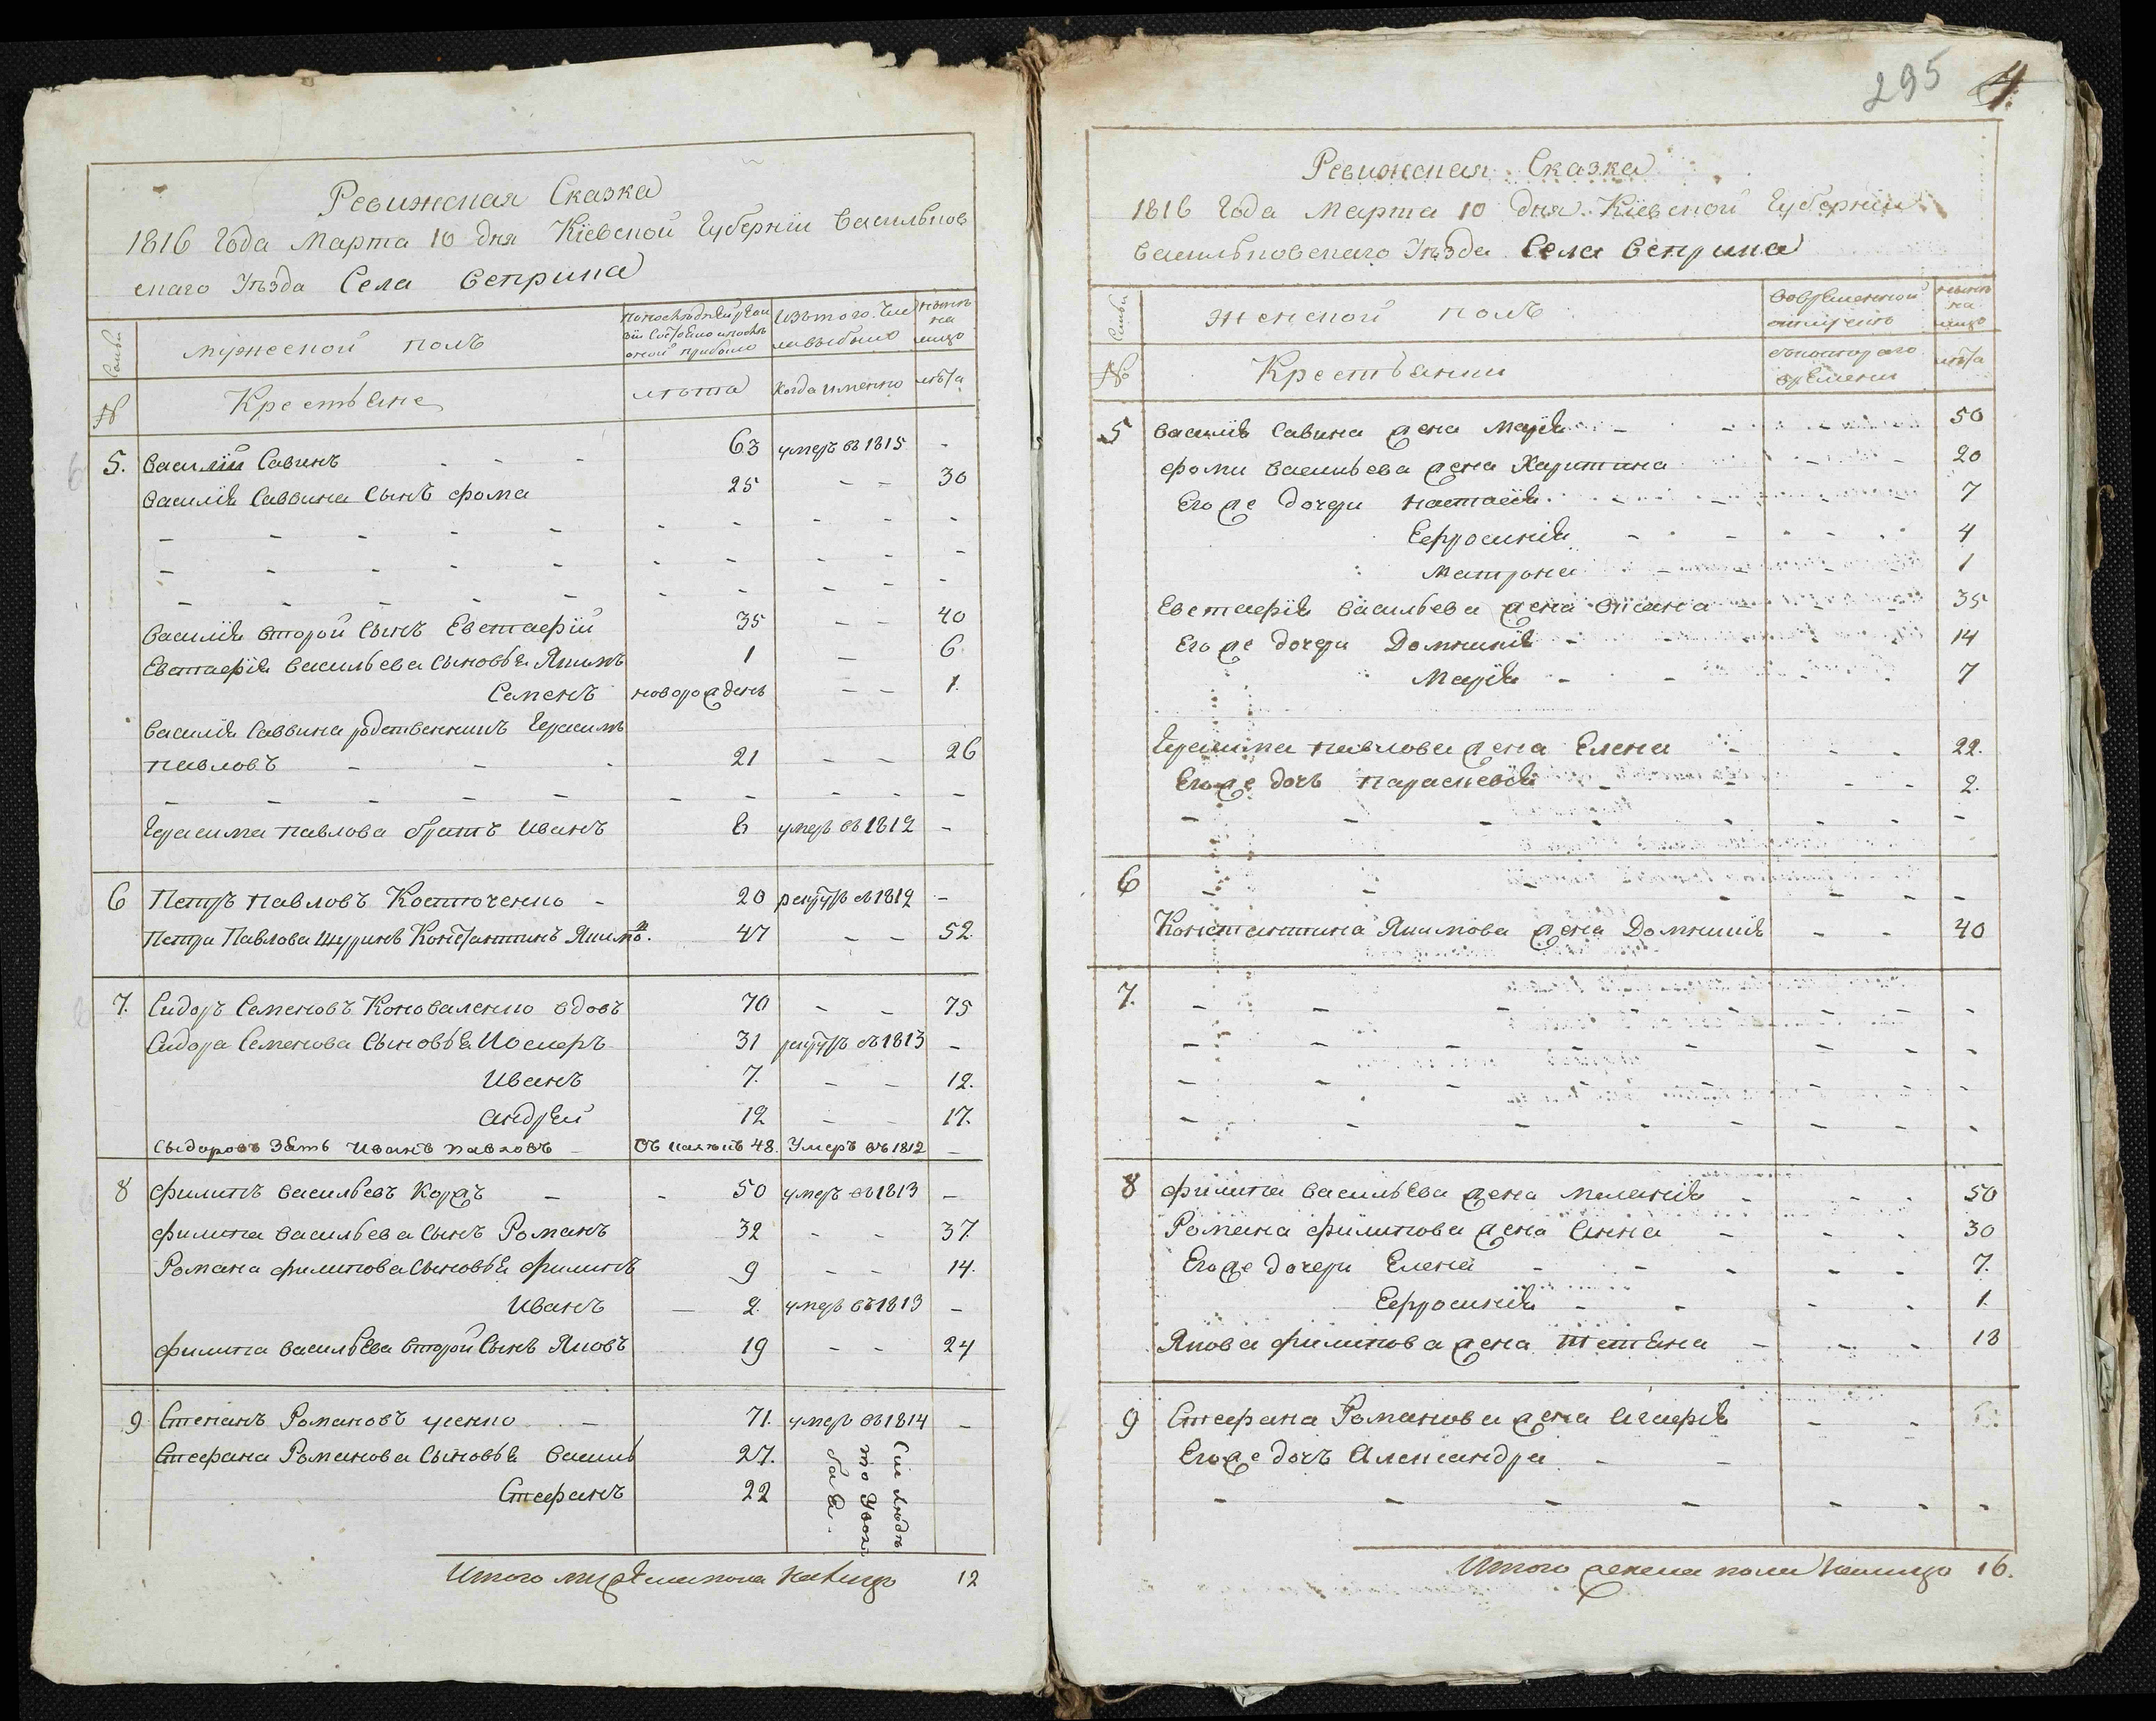 Ревижская Сказка
1816 Года Марта 10 дня Кіевской Губерніи Васильков
скаго Уѣзда Села Веприка
Семьи
Мужеской полъ
По последней реви
зіи состояло и послѣ
оной прибыло
Изъ того числа выбыло
Нынѣ на лицо
№
Крестьяне
лѣта
Когда именно
лѣта
5. Василій Савинъ - - - 63 умеръ въ 1815 -
Василія Саввина Сынъ Фома 25 - - 30
Василія второй Сынъ Евстафій 35 - - 40
Евстафія Васильева Сыновья Якимъ 1 - 6
Семенъ новорожденъ - - 1.
Василія Саввина родственникъ Герасимъ
Павловъ - - - 21 - - 26
Герасима Павлова братъ Иванъ 6 умеръ въ 1812 -
6 Петръ Павловъ Костюченко - 20 рекрутъ въ 1812 -
Петра Павлова Шуринъ Константинъ Якимовъ. 47 - - 52.
7. Сидоръ Семеновъ Коноваленко вдовъ 70 - - 75
Сидора Семенова Сыновья Иосифъ 31 рекрутъ въ 1813 -
Иванъ 7. - - 12.
Андрей 12 - - 17.
Сыдоровъ Зять Иванъ Павловъ - 48. Умеръ въ 1812 -
8 Филипъ Васильевъ Коржъ - - 50 умеръ въ 1813 -
Филипа Васильева Сынъ Романъ 32 - - 37.
Романа Филипова Сыновья Филипъ 9 - - 14.
Иванъ - 2. умеръ въ 1813 -
Филипа Васильева второй Сынъ Яковъ 19 - - 24
9 Степанъ Романовъ Усенко - 71. умеръ въ 1814 -
Стефана Романова Сыновья Василь 27.
Стефанъ 22
Сіи люди
Итого мужеска пола на лицо 12
295 4.
Ревижская Сказка
1816 Года Марта 10 дня Кіевской Губерніи
Васильковскаго Уѣзда Села Веприка
Семьи
Женской полъ
Во временной
отлучкѣ
Нынѣ
на
лицо
№
Крестьянки
съ котораго
времени
лѣта
5 Василія Савина жена Марія - - 50
Фомы Васильева жена Харитина - - 20
Его же дочери Настасія - - 7
Ефросинія - - 4
Матрона - - 1
Евстафія Васильева жена Оксана - - 35
Его же дочери Домникія - - 14
Марія - - 7
Герасима Павлова жена Елена - - 22.
Его же дочь Параскевія - - 2.
6
Константина Якимова жена Домникія - - 40
7.
8 Филипа Васильева жена Меланія - - 50
Романа Филипова жена Анна - - 30
Его же дочери Елена - - 7.
Ефросинія - - 1.
Якова Филипова жена Тетяна - - 18
9 Стефана Романова жена Агафія - -
Его же дочь Александра - -
Итого женска пола на лицо 16.